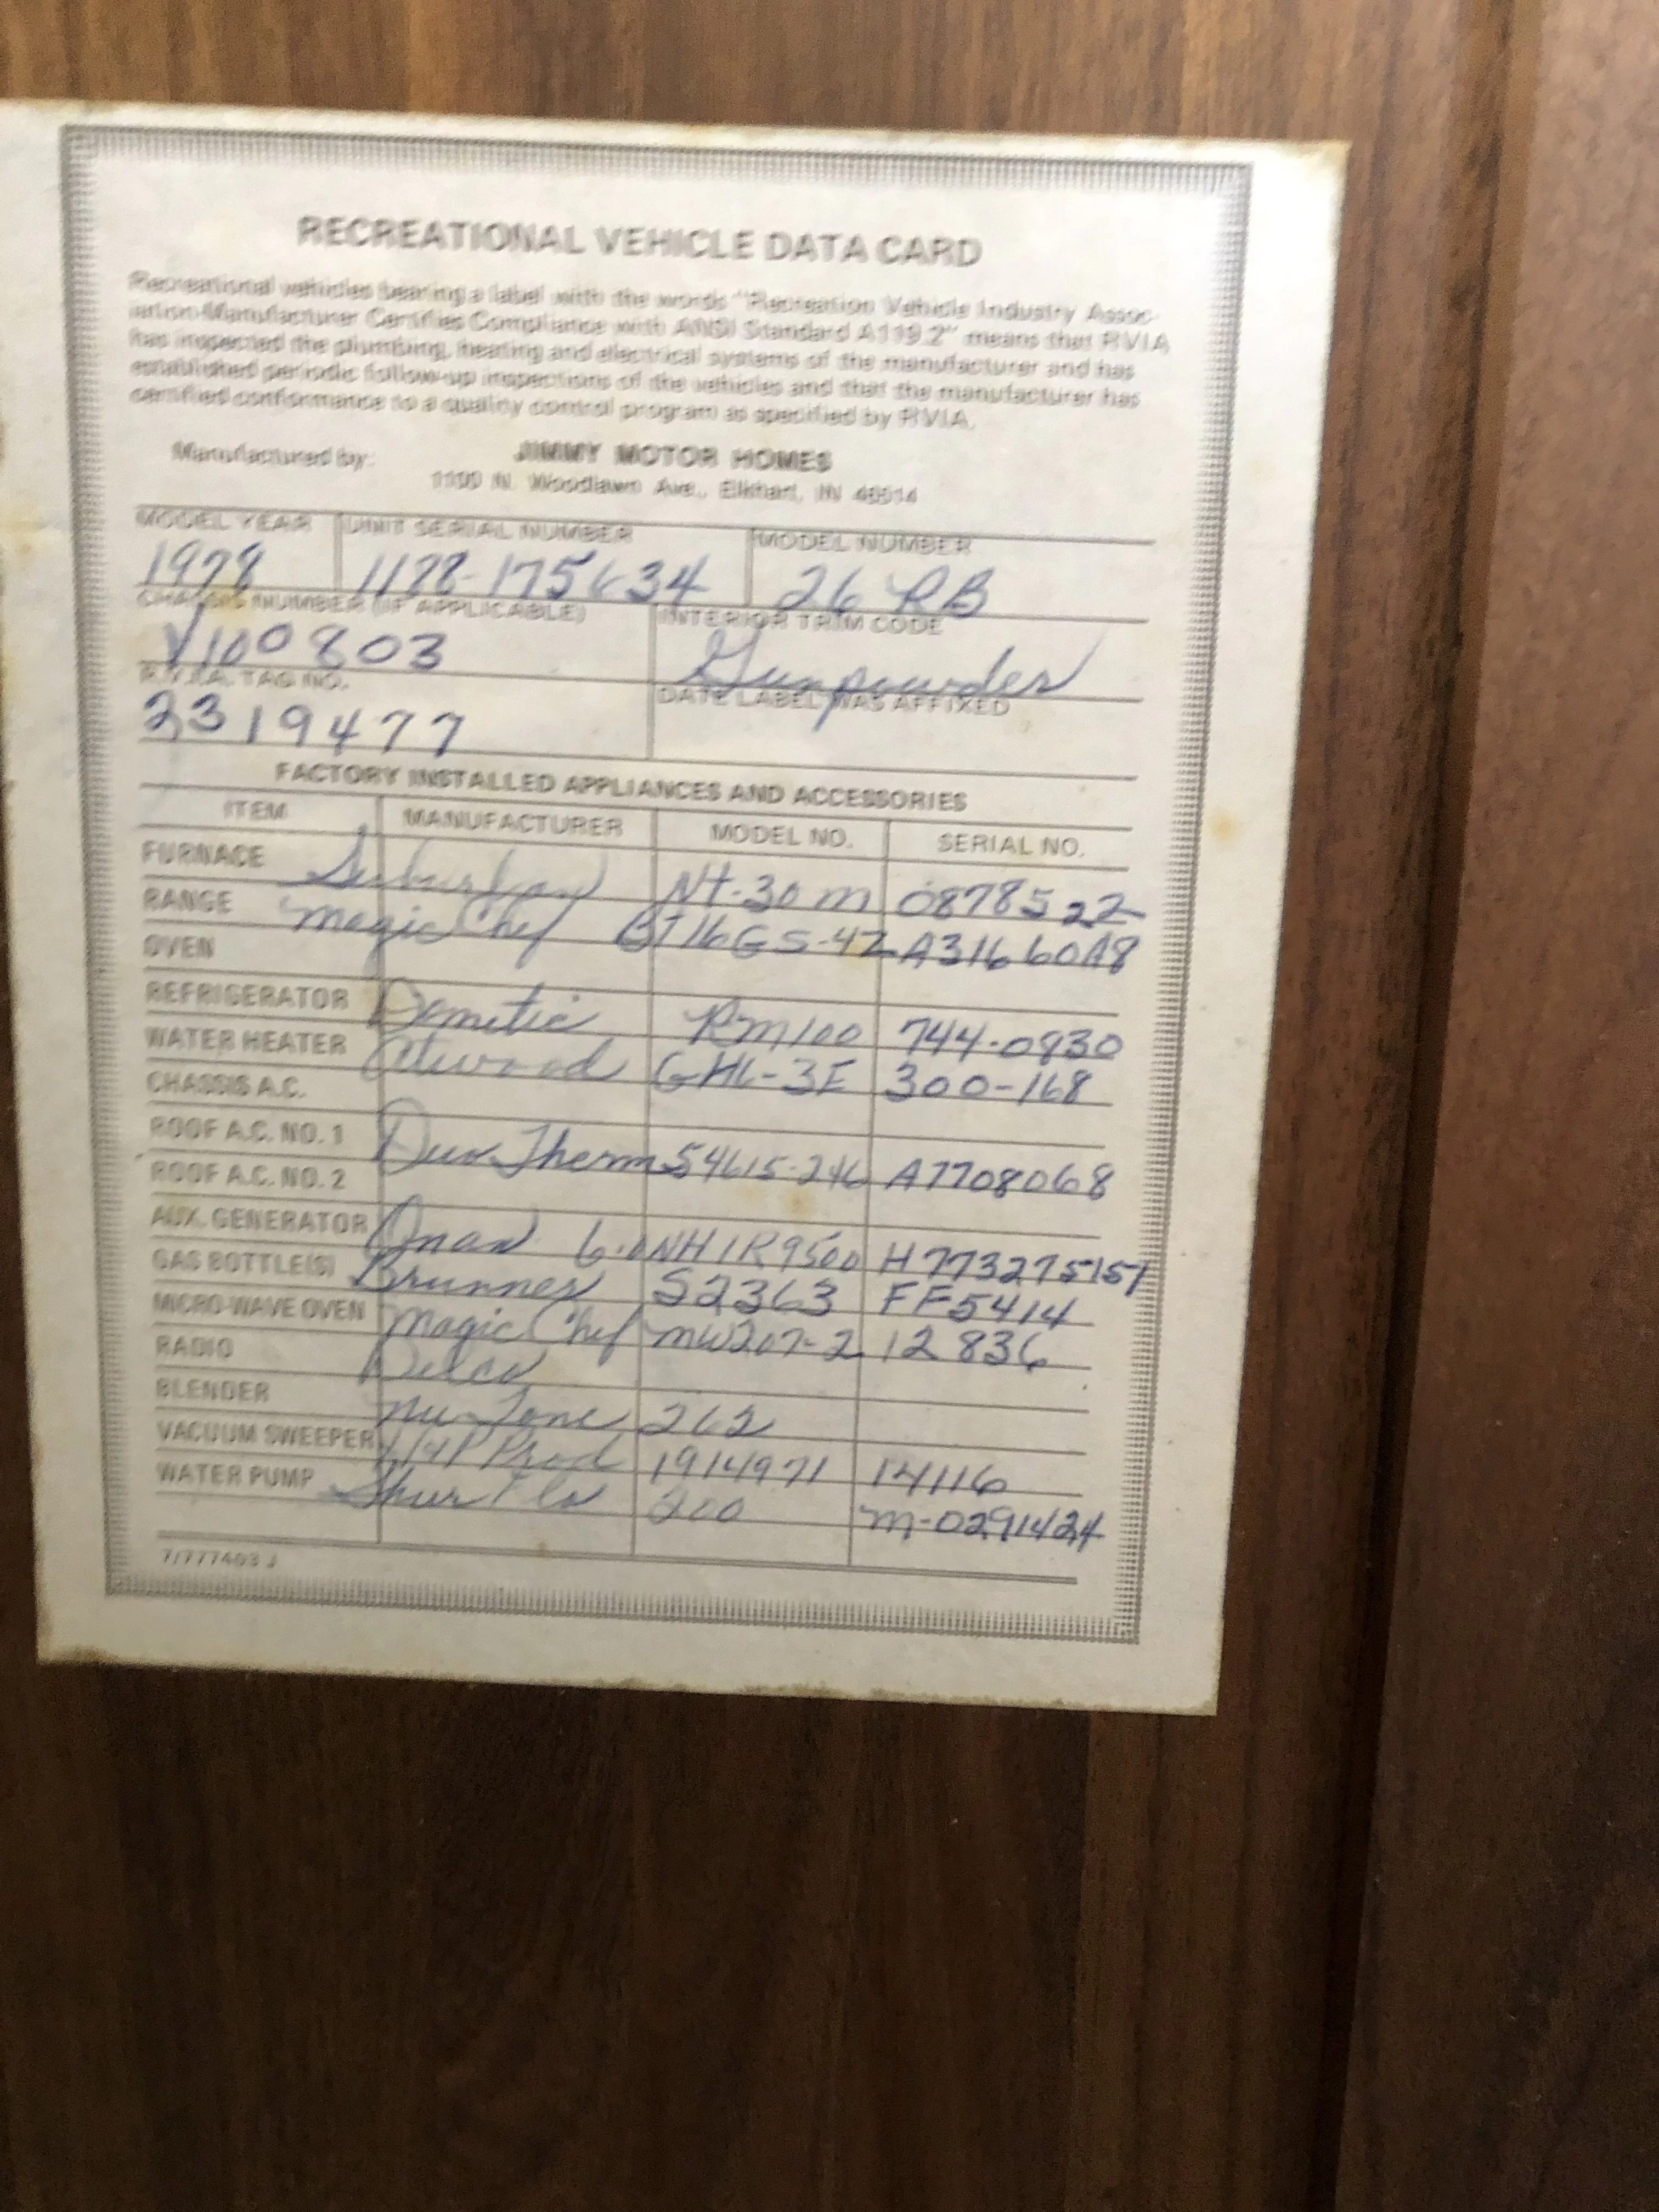 RECREATIONAL VEHICLE DATA CARD
Recreational vehicles bearing a label with the words "Recreation Vehicle Industry Assoc-
iation-Manufacturer Certifies Compliance with ANSI Standard A119.2" means that RVIA
has inspected the plumbing, heating and electrical systems of the manufacturer and has
established periodic follow-up inspections of the vehicles and that the manufacturer has
certified conformance to a quality control program as specified by RVIA.
Manufactured by: JIMMY MOTOR HOMES
1100 N. Woodlawn Ave., Elkhart, IN 46514
MODEL YEAR UNIT SERIAL NUMBER MODEL NUMBER
1978 1178-175634 26 RB
CHASSIS NUMBER (IF APPLICABLE) INTERIOR TRIM CODE
V100803 Gunpowder
R.V.I.A. TAG NO. DATE LABEL WAS AFFIXED
2319477
FACTORY INSTALLED APPLIANCES AND ACCESSORIES
ITEM MANUFACTURER MODEL NO. SERIAL NO.
FURNACE Suburban Nt-30 m 08785 22
RANGE Magic Chef BT16GS-4Z A316 60A8
OVEN
REFRIGERATOR Dometic Rm100 744-0830
WATER HEATER Atwood GH6-3E 300-168
CHASSIS A.C.
ROOF A.C. NO. 1 Duo-Therm 54615-246 A7708068
ROOF A.C. NO. 2
AUX. GENERATOR Onan 6.0NH1R9500 H773275151
GAS BOTTLE(S) Brunner S2363 FF5414
MICRO-WAVE OVEN Magic Chef mW207-2 12836
RADIO Delco
BLENDER Nu-Tone 262
VACUUM SWEEPER Prod 1914971 14116
WATER PUMP Shur Flo 200 m-0291424
7/777403 J